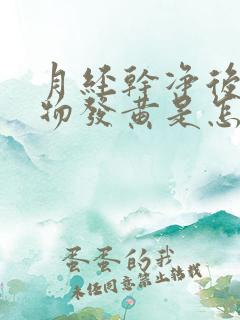 月經幹淨後
物發黃是怎
蛋蛋的我
未经同意禁止转载